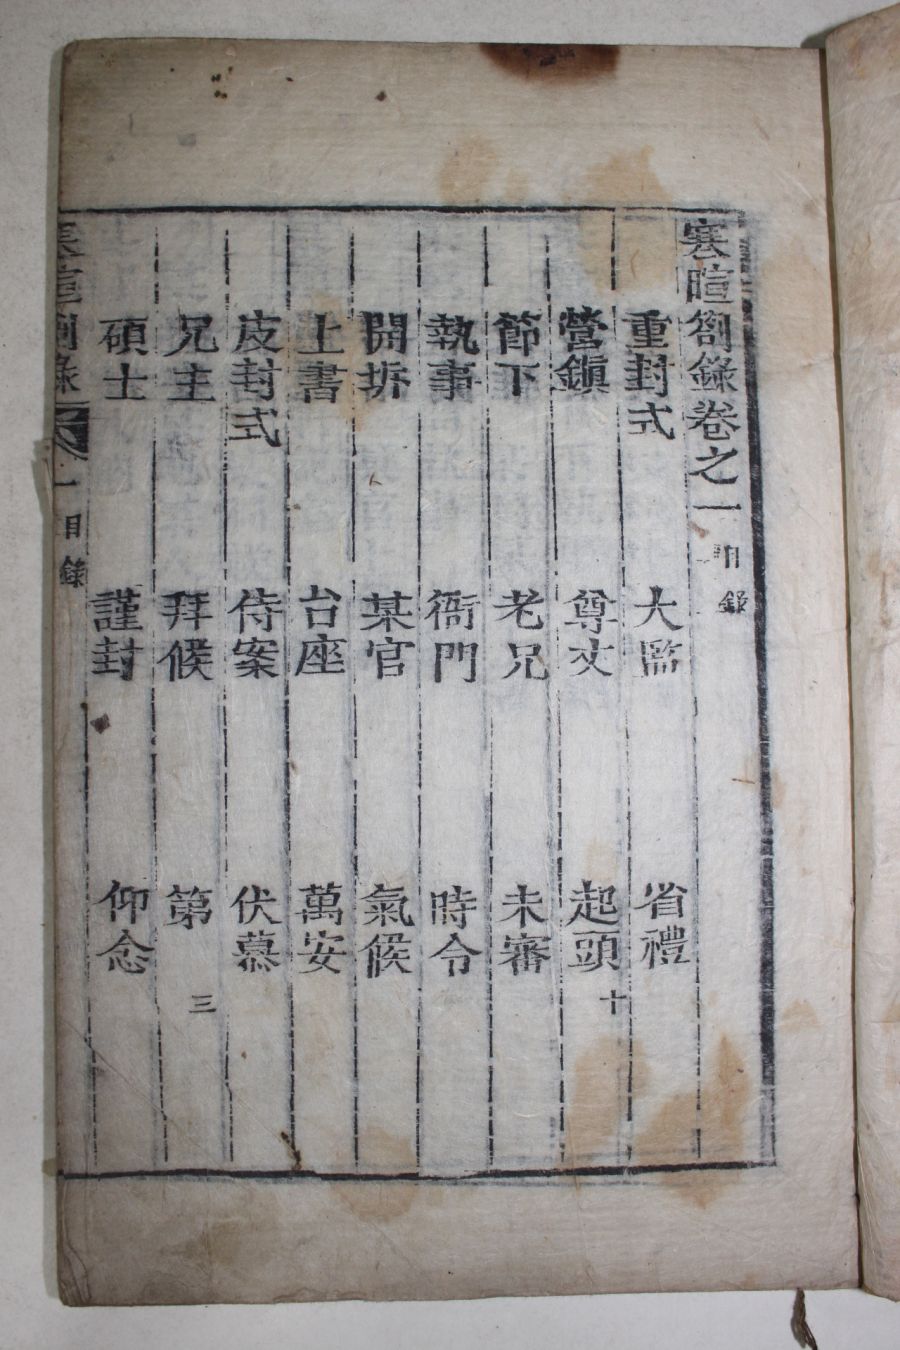 寒暄劄錄卷之一 目錄
重封式 大監 省禮
營鎭 尊丈 起頭 十
節下 老兄 未審
執事 衙門 時令
開拆 某官 氣候
上書 台座 萬安
皮封式 侍案 伏慕
兄主 拜候 第 三
碩士 謹封 仰念
寒暄劄錄 一 目錄